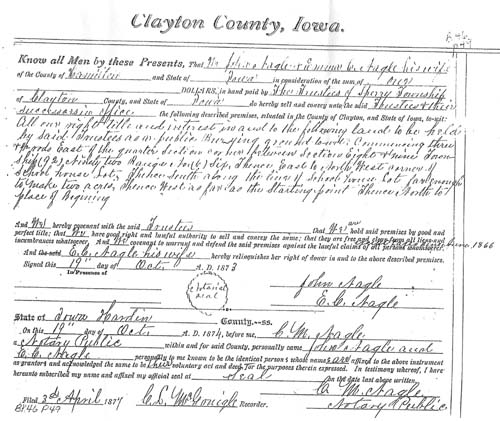 Clayton County, Iowa.
B.46
P.49
Know all Men by these Presents, That We John Nagle & Emma C. Nagle his wife
of the County of Hamilton and State of Iowa in consideration of the sum of One
DOLLARS, in hand paid by The Trustees of Sperry Township
of Clayton County, and State of Iowa do hereby sell and convey unto the said Trustees & their
successors in office the following described premises, situated in the County of Clayton, and State of Iowa, to-wit:
All our right title and interest in and to the following land to be held
by said Trustees as a public Burying ground to-wit: Commencing three
Rods East of the quarter section corner between Sections Eight & nine Town
ship (92) Ninety two Range No (6) Six, Thence East to North West corner of
School house Lot, Thence South along the line of School house Lot far enough
to make two acres, Thence West as far as the Starting point Thence North to
place of Beginning
And We hereby covenant with the said Trustees that We are hold said premises by good and
perfect title; that We have good right and lawful authority to sell and convey the same; that they are free and clear from all liens and
incumbrances whatsoever. And We covenant to warrant and defend the said premises against the lawful claims of all persons whomsoever. 1866
And the said C. C. Nagle his wife hereby relinquishes her right of dower in and to the above described premises.
Signed this 19th day of Oct. A. D. 1873
In Presence of
Notarial
seal
John Nagle
E. C. Nagle
State of Iowa Hardin County.—ss.
On this 19th day of Oct. A. D. 1874, before me, C. M. Nagle
Notary Public within and for said County, personally came John Nagle and
E. C. Nagle personally to me known to be the identical persons whose names are affixed to the above instrument
as grantors and acknowledged the same to be their voluntary act and deed, for the purposes therein expressed. In testimony whereof, I have
hereunto subscribed my name and affixed my official seal at seal on the date last above written.
C. M. Nagle
Notary Public
Filed 3rd April 1877 C. L. McGonigle Recorder.
BK46 P49